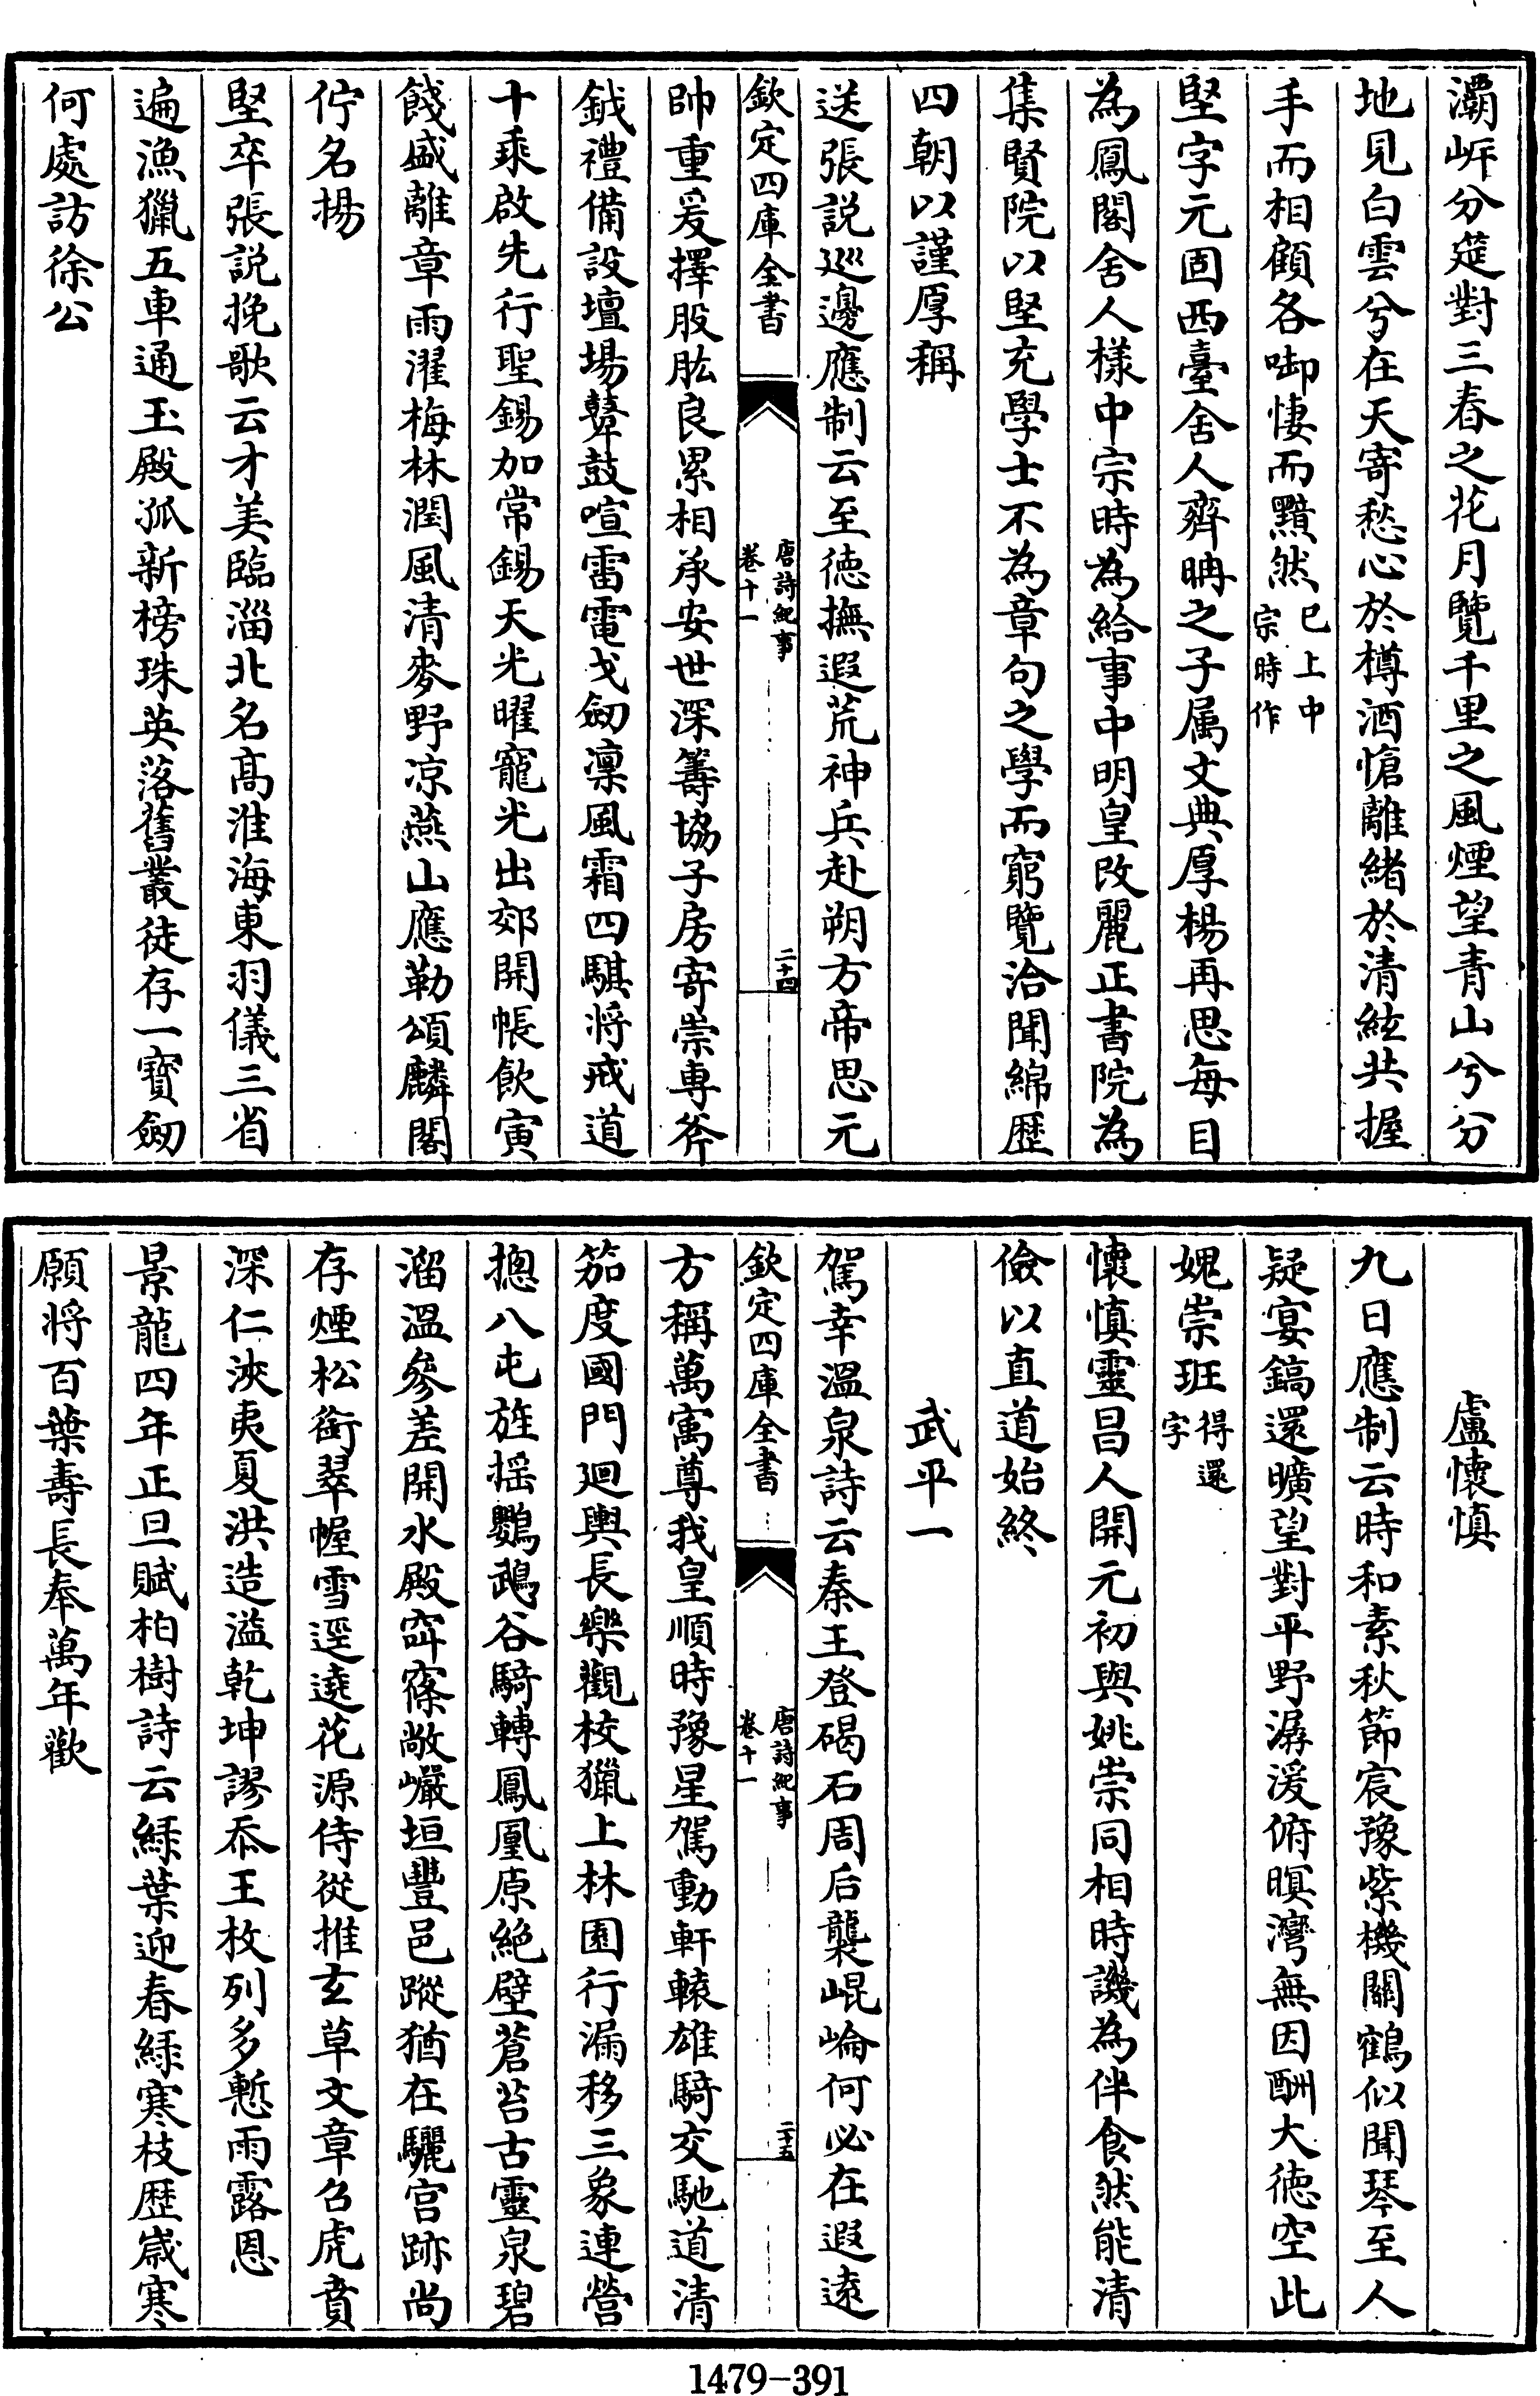 灞岍分筵對三春之花月覽千里之風煙望青山兮分
地見白雲兮在天寄愁心於樽酒愴離緒於清絃共握
手而相顧各啣悽而黯然已上中宗時作
堅字元固西臺舍人齊聃之子属文典厚楊再思每目
為鳳閣舍人様中宗時為給事中明皇改麗正書院為
集賢院以堅充學士不為章句之學而窮覽洽聞綿歴
四朝以謹厚稱
送張説巡邊應制云至徳撫遐荒神兵赴朔方帝思元
欽定四庫全書
唐詩紀事
卷十一
二十四
帥重爰擇股肱良累相承安世深籌協子房寄崇専斧
鉞禮備設壇場鼙鼓喧雷電戈劒凛風霜四騏将戒道
十乘啟先行聖錫加常錫天光曜寵光出郊開帳飲寅
餞盛離章雨濯梅林潤風清麥野凉燕山應勒頌麟閣
佇名揚
堅卒張説挽歌云才美臨淄北名髙淮海東羽儀三省
遍漁獵五車通玉殿孤新榜珠英落舊叢徒存一寶劒
何處訪徐公
盧懐慎
九日應制云時和素秋節宸豫紫機關鶴似聞琴至人
疑宴鎬還曠望對平野潺湲俯暝灣無因酬大徳空此
媿崇班得還字
懐慎靈昌人開元初與姚崇同相時譏為伴食然能清
儉以直道始終
武平一
駕幸温泉詩云秦王登碣石周后襲崐崘何必在遐逺
欽定四庫全書
唐詩紀事
卷十一
二十五
方稱萬寓尊我皇順時豫星駕動軒轅雄騎交馳道清
笳度國門廻輿長樂觀校獵上林園行漏移三象連營
摠八屯旌揺鸚鵡谷騎轉鳳凰原絶壁蒼苔古靈泉碧
溜温參差開水殿窊窱敞巖垣豐邑蹤猶在驪宫跡尚
存煙松銜翠幄雪逕遶花源侍從推𤣥草文章召虎賁
深仁浹夷夏洪造溢乾坤謬忝王枚列多慙雨露恩
景龍四年正旦賦柏樹詩云緑葉迎春緑寒枝歴嵗寒
願将百葉壽長奉萬年歡
1479-391